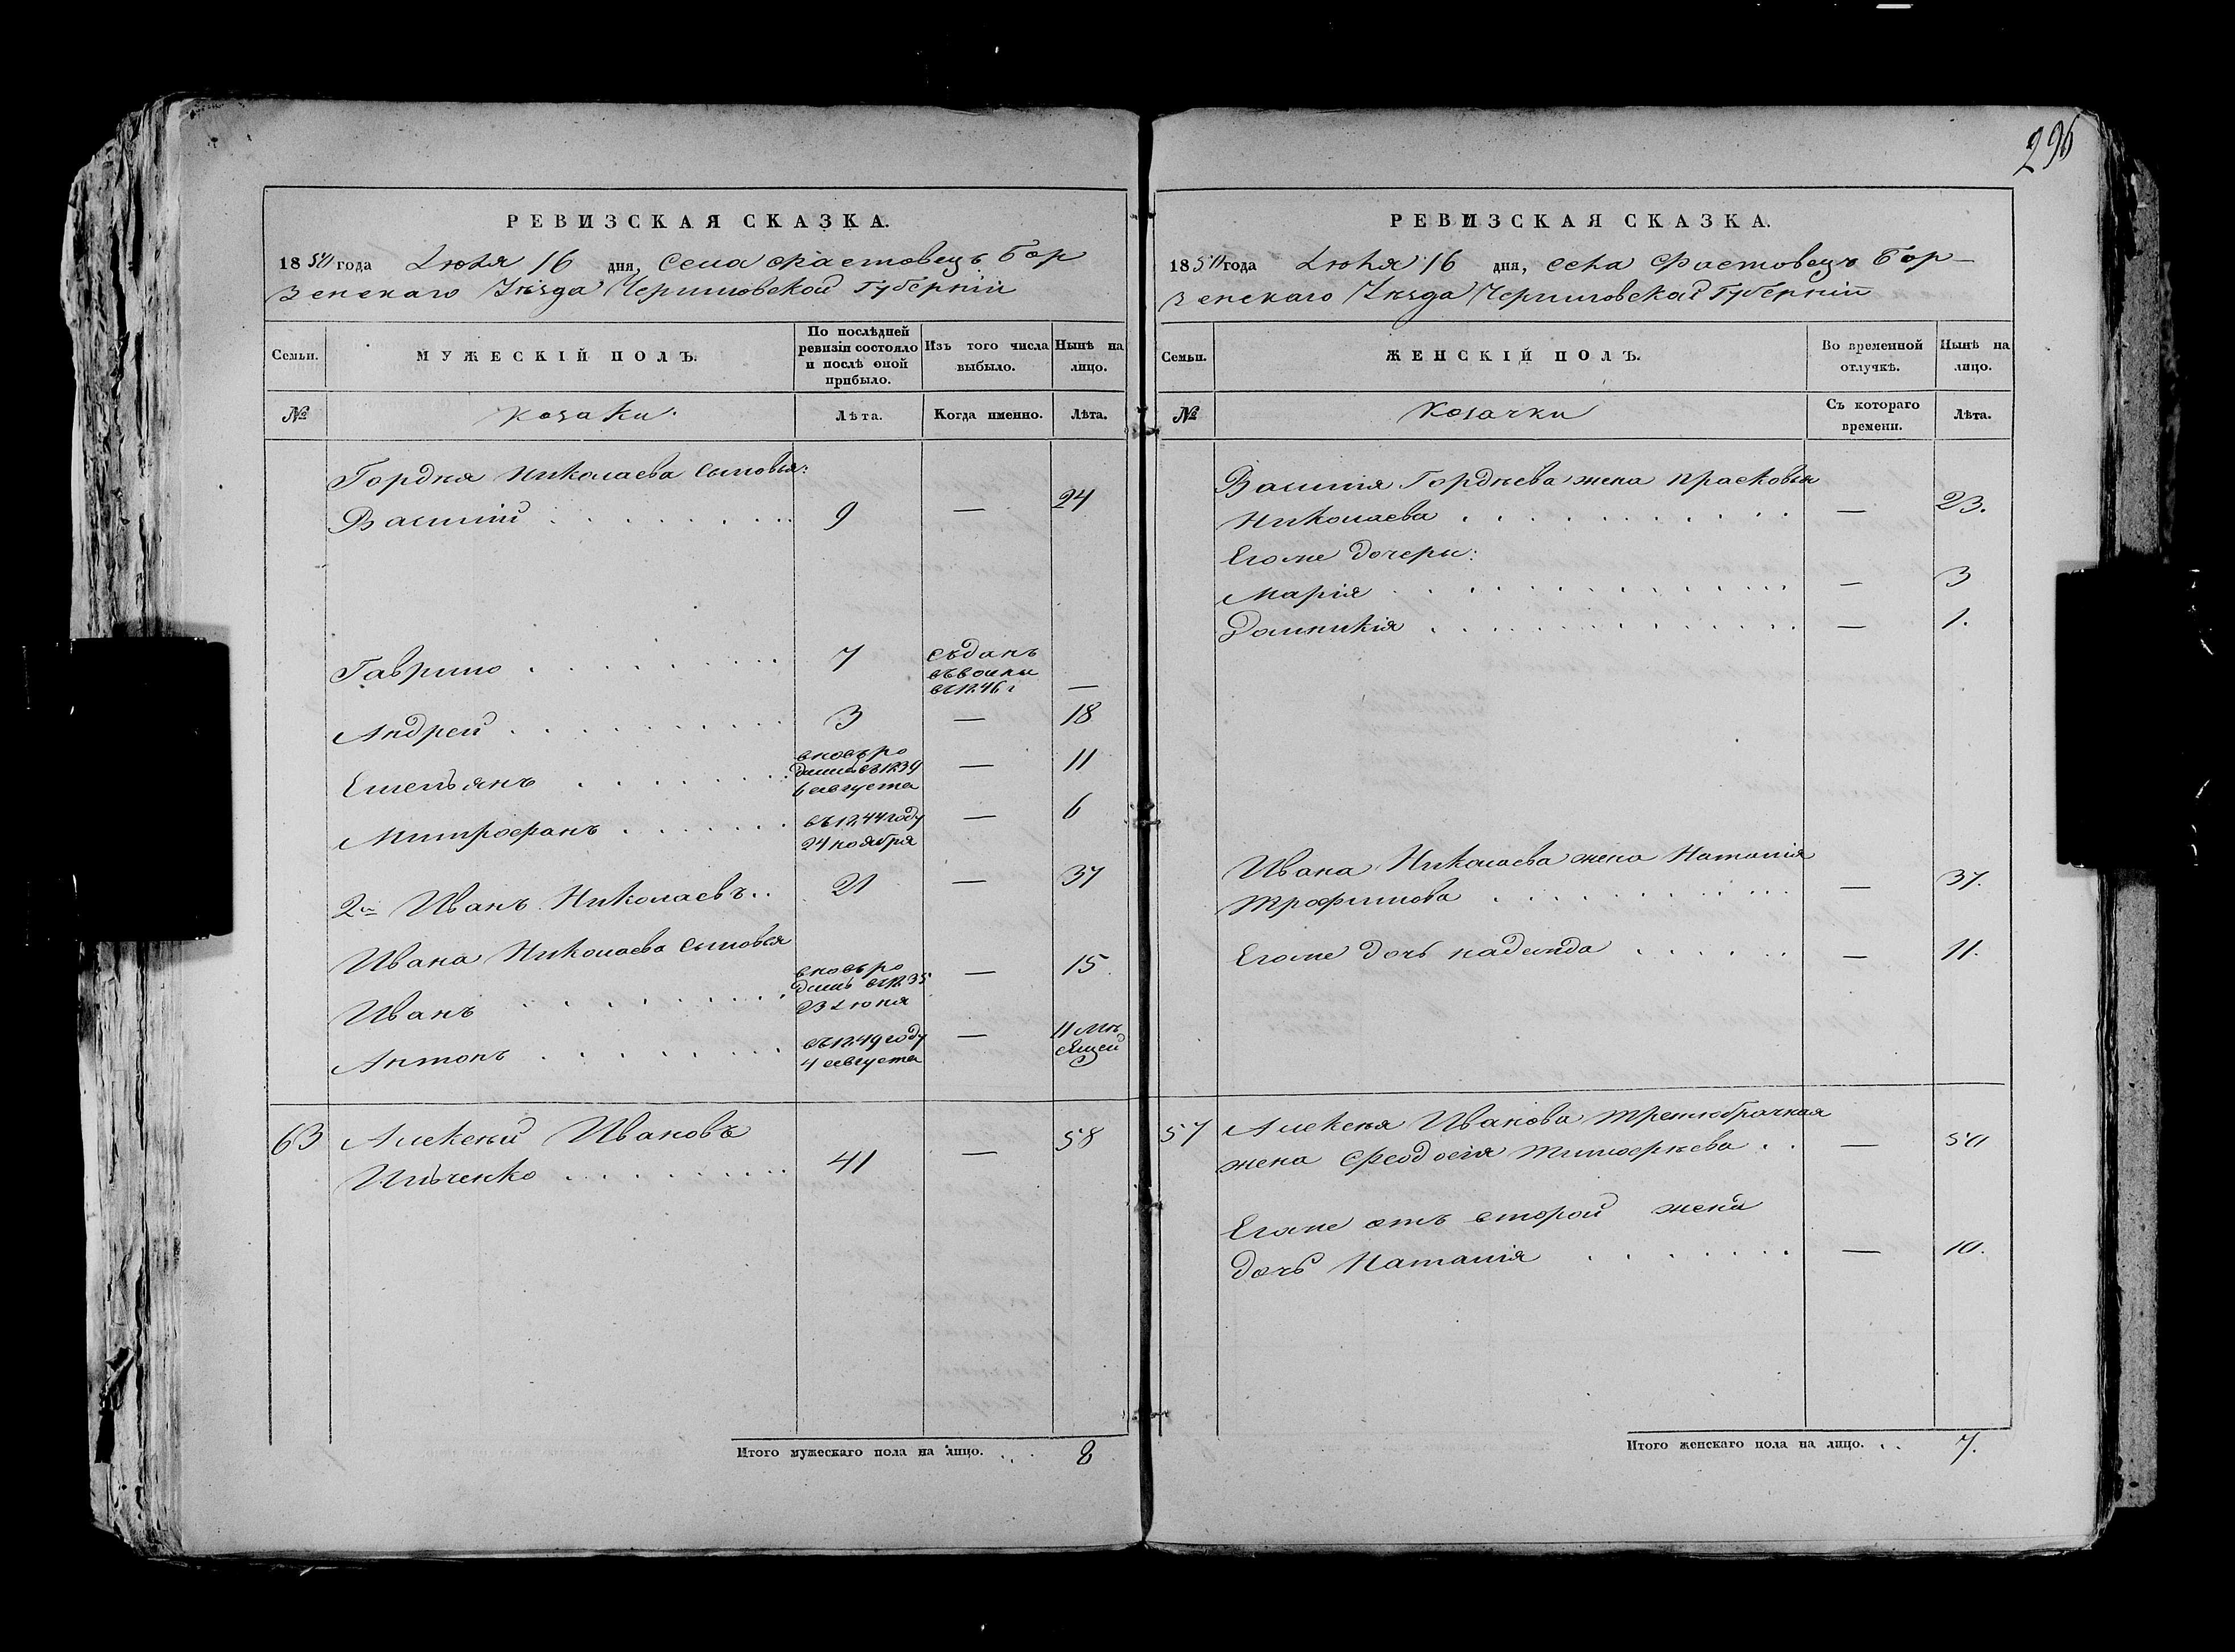 296
РЕВИЗСКАЯ СКАЗКА.
1850 года Июля 16 дня, Села Фастовецъ Бор
зенскаго Уѣзда Черниговской Губерніи
Семьи.
МУЖЕСКІЙ ПОЛЪ.
По послѣдней ревизіи состояло и послѣ оной прибыло.
Изъ того числа выбыло.
Нынѣ на лицо.
№
Козаки.
Лѣта.
Когда именно.
Лѣта.
Гордѣя Николаева сыновья:
Василій 9 — 24
Гаврило 7 въ 1846 г —
Андрей 3 — 18
Емельянъ вновь ро
дился въ 1839 — 11
6 августа
Митрофанъ въ 1844 году — 6
24 ноября
2й Иванъ Николаевъ 21 — 37
Ивана Николаева сыновья
Иванъ вновь ро
дил въ 1835 — 15
23 Июня
Антонъ въ 1849 году — 11 мѣ
4 августа сяцей
63 Алексѣй Ивановъ
Ильченко 41 — 58
Итого мужескаго пола на лицо. 8
РЕВИЗСКАЯ СКАЗКА.
1850 года Июля 16 дня, Села Фастовецъ Бор-
зенскаго Уѣзда Черниговской Губерніи
Семьи.
ЖЕНСКІЙ ПОЛЪ.
Во временной отлучкѣ.
Нынѣ на лицо.
№
Козачки
Съ котораго времени.
Лѣта.
Василія Гордѣева жена Прасковья
Николаева — 23.
Егоже дочери:
Марія — 3
Домникія — 1.
Ивана Николаева жена Наталія
Трофимова — 37.
Егоже дочь Надежда — 11.
57 Алексѣя Иванова третьебрачная
жена Феодосія Тимофѣева — 50
Егоже отъ второй жены
дочь Наталія — 10.
Итого женскаго пола на лицо. 7.